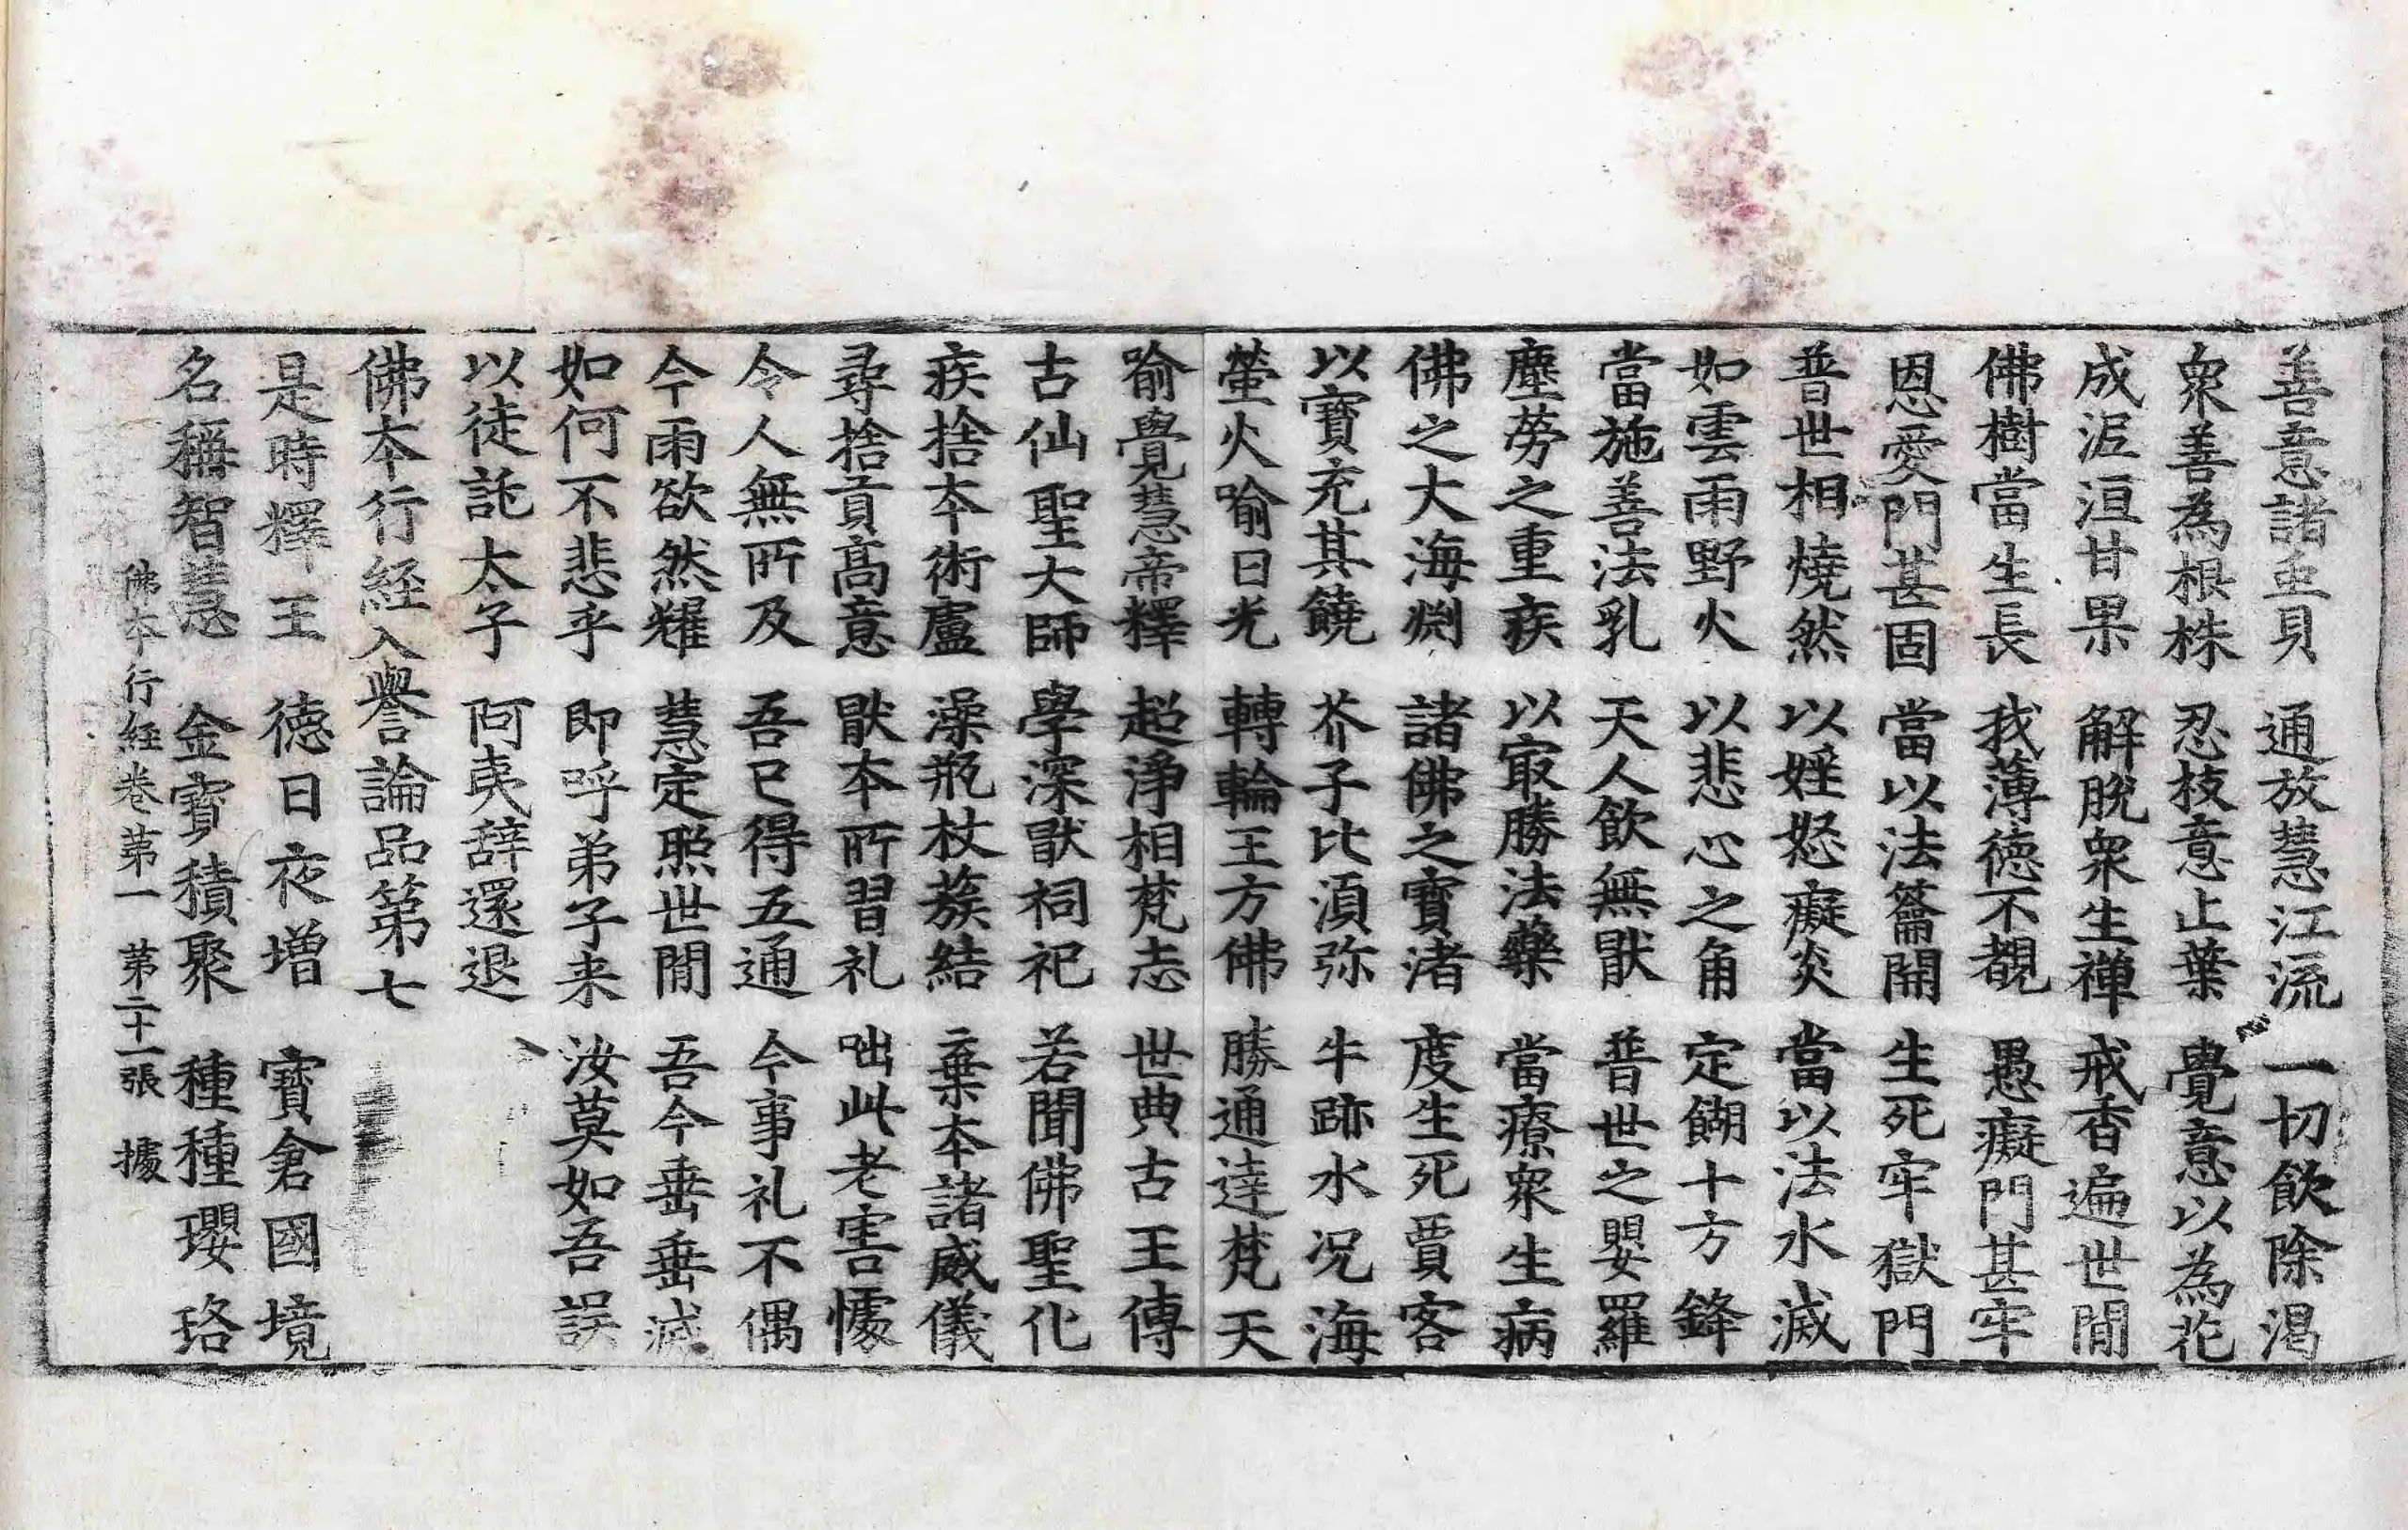 善意諸虫貝　通放慧江流　一切飲除渴
衆善為根株　忍枝意止葉　覺意以為花
成泥洹甘果　解脫衆生禅　戒香遍世間
佛樹當生長　我薄德不覩　愚癡門甚牢
恩愛門甚固　當以法籥開　生死牢獄門
普世相燒然　以婬怒癡炎　當以法水滅
如雲雨野火　以悲心之角　定餬十方鋒
當施善法乳　天人飲無猒　普世之嬰羅
塵勞之重疾　以冣勝法藥　當療衆生病
佛之大海渕　諸佛之寶渚　度生死賈客
以寶充其饒　芥子比湏弥　牛跡水况海
螢火喻日光　轉輪王方佛　勝通達梵天
喻覺慧帝釋　超淨相梵志　世典古王傳
古仙聖大師　學深猒祠祀　若聞佛聖化
疾捨本術廬　澡瓶杖蔟結　棄本諸威儀
尋捨貢高意　猒本所習礼　咄此老害懅
令人無所及　吾已得五通　今事礼不偶
今雨欲然耀　慧定照世間　吾今垂垂滅
如何不悲乎　即呼弟子来　汝莫如吾誤
以徒託太子　阿夷辞還退
佛本行経入譽論品第七
是時釋王　德日夜增　寶倉國境
名稱智慧　金寶積聚　種種瓔珞
佛本行経卷苐一　苐二十一張　據